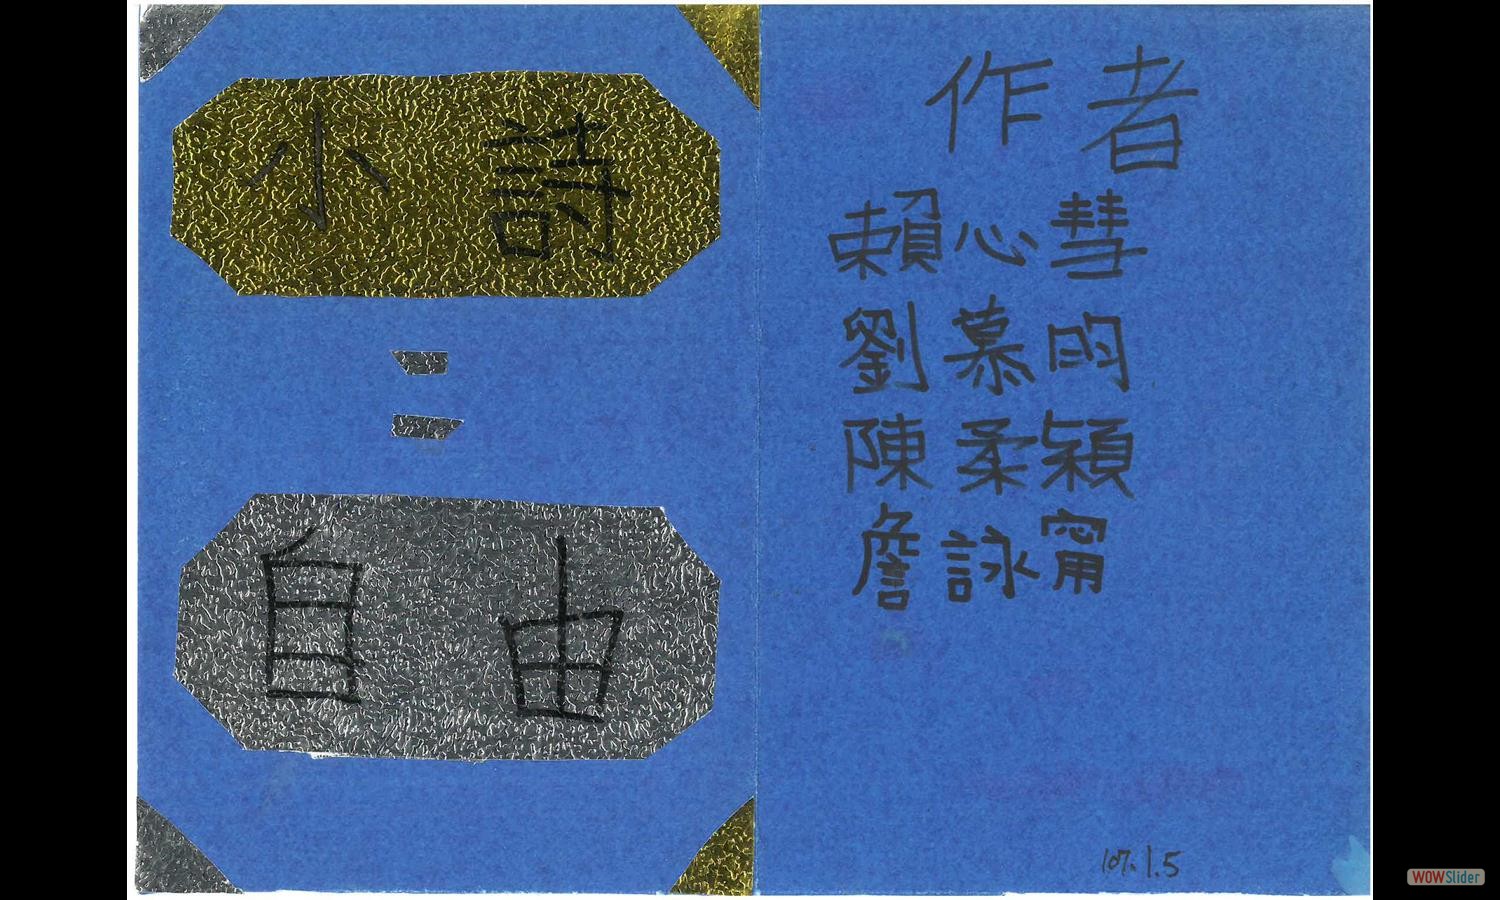 小詩
=
自由
作者
賴心彗
劉慕昀
陳柔穎
詹詠甯
107.1.5
WOWSlider